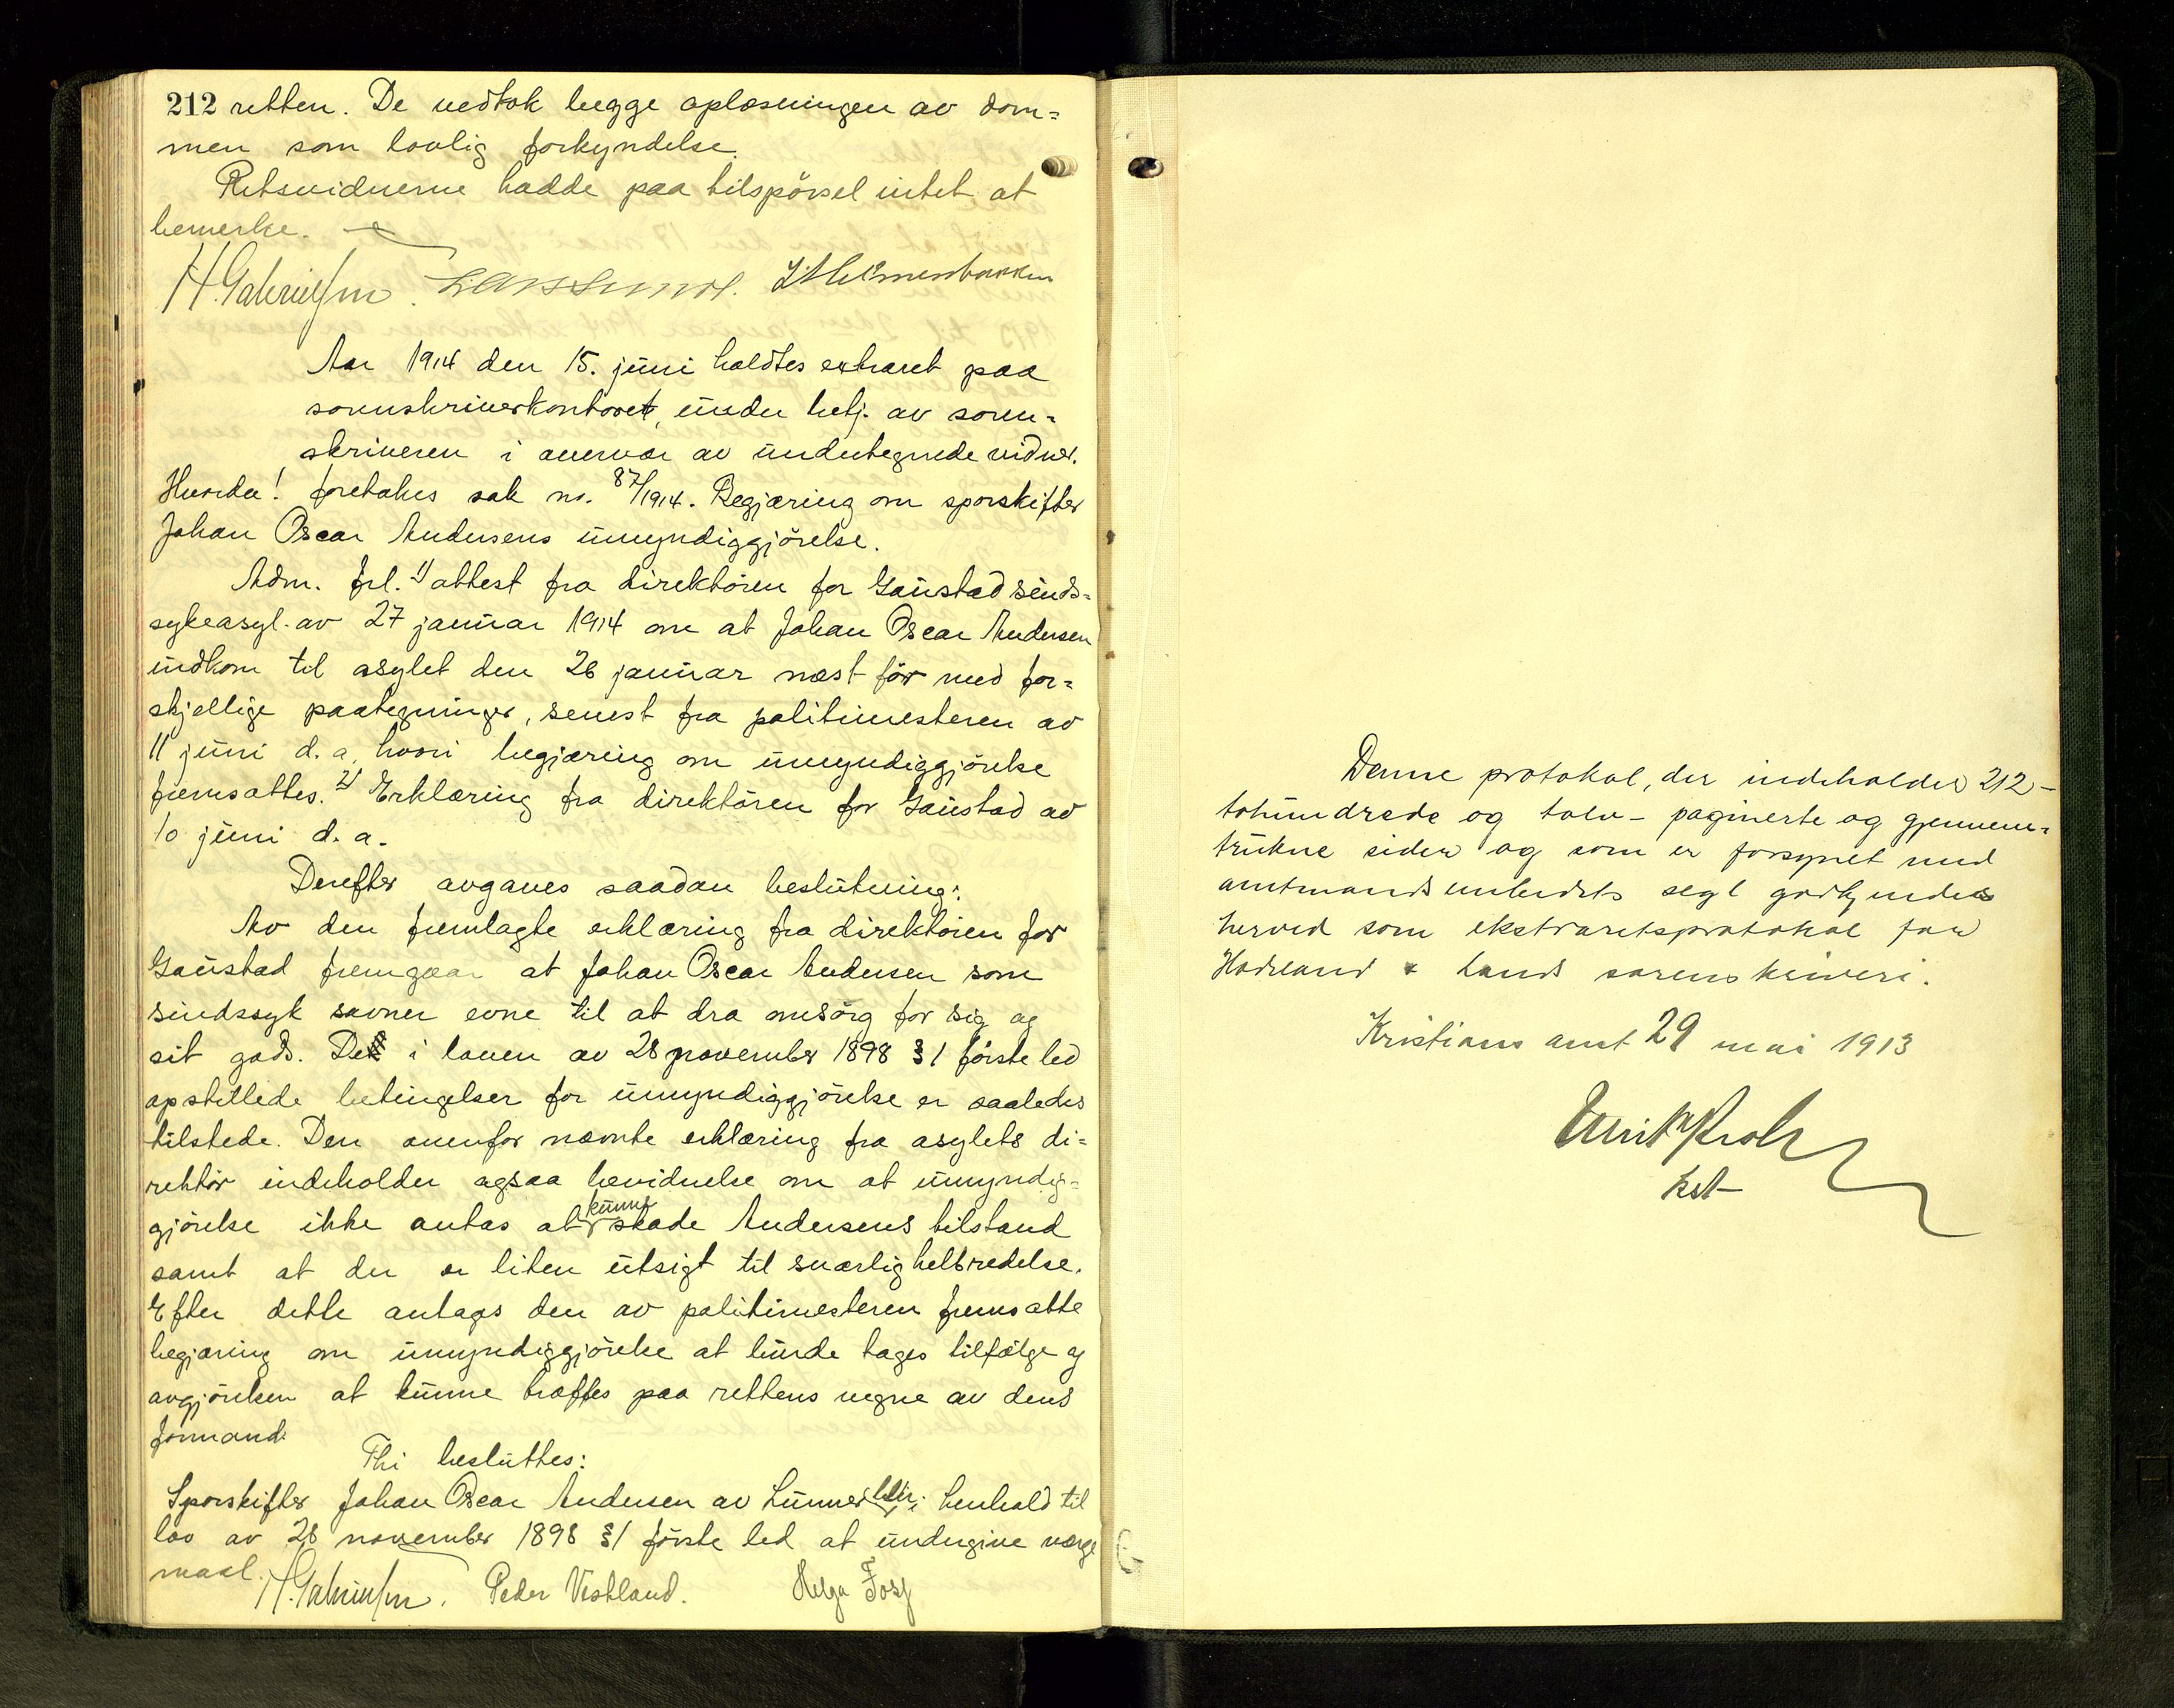 212 retten. De vedtok begge oplæsningen av dom=
men som lovlig forkyndelse.
Retsvidnerne hadde paa tilspörsel intet at
bemerke.
H. Gabrielsen.
Aar 1914 den 15. juni holdtes extraret paa
sorenskriverkontoret, under betj. av soren=
skriveren i overvær av undertegnede vidner.
Hvorda! foretokes sak no. 87/1914. Begjæring om sporskifter
Johan Oscar Andersens umyndiggjörelse.
Adm. frl. 1) attest fra direktören for Gaustad sinds=
sykeasyl av 27 januar 1914 om at Johan Oscar Andersen
indkom til asylet den 26 januar næst för med for=
skjellige paategninger, senest fra politimesteren av
11 juni d.a, hvori begjæring om umyndiggjörelse
fremsattes. 2) Erklæring fra direktören for Gaustad av
10 juni d. a.
Derefter avgaves saadan beslutning:
Av den fremlagte erklæring fra direktören for
Gaustad fremgaar at Johan Oscar Andersen som
sindssyk savner evne til at dra omsorg for sig og
sit gods. De i loven av 28 november 1898 § 1 förste led
opstillede betingelser for umyndiggjörelse er saaledes
tilstede. Den ovenfor nævnte erklæring fra asylets di=
rektör indeholder ogsaa bevidnelse om at umyndig=
gjörelse ikke antas at kunne skade Andersens tilstand
samt at der er liten utsigt til snarlig helbredelse.
Efter dette antages den av politimesteren fremsatte
begjæring om umyndiggjörelse at burde tages tilfölge og
avgjörelsen at kunne træffes paa rettens vegne av dens
formand.
Thi besluttes:
Sporskifter Johan Oscar Andersen av Lunner blir i henhold til
lov av 28 november 1898 § 1 förste led at undergive værge
maal.
H. Gabrielsen. Peder Vestland. Helga Foss
Denne protokol, der indeholder 212 -
tohundrede og tolv - paginerte og gjennem=
trukne sider og som er forsynet med
amtmandsembedets segl godkjendes
herved som ekstraretsprotokol for
Hadeland & Lands sorenskriveri.
Kristians amt 29 mai 1913
kst